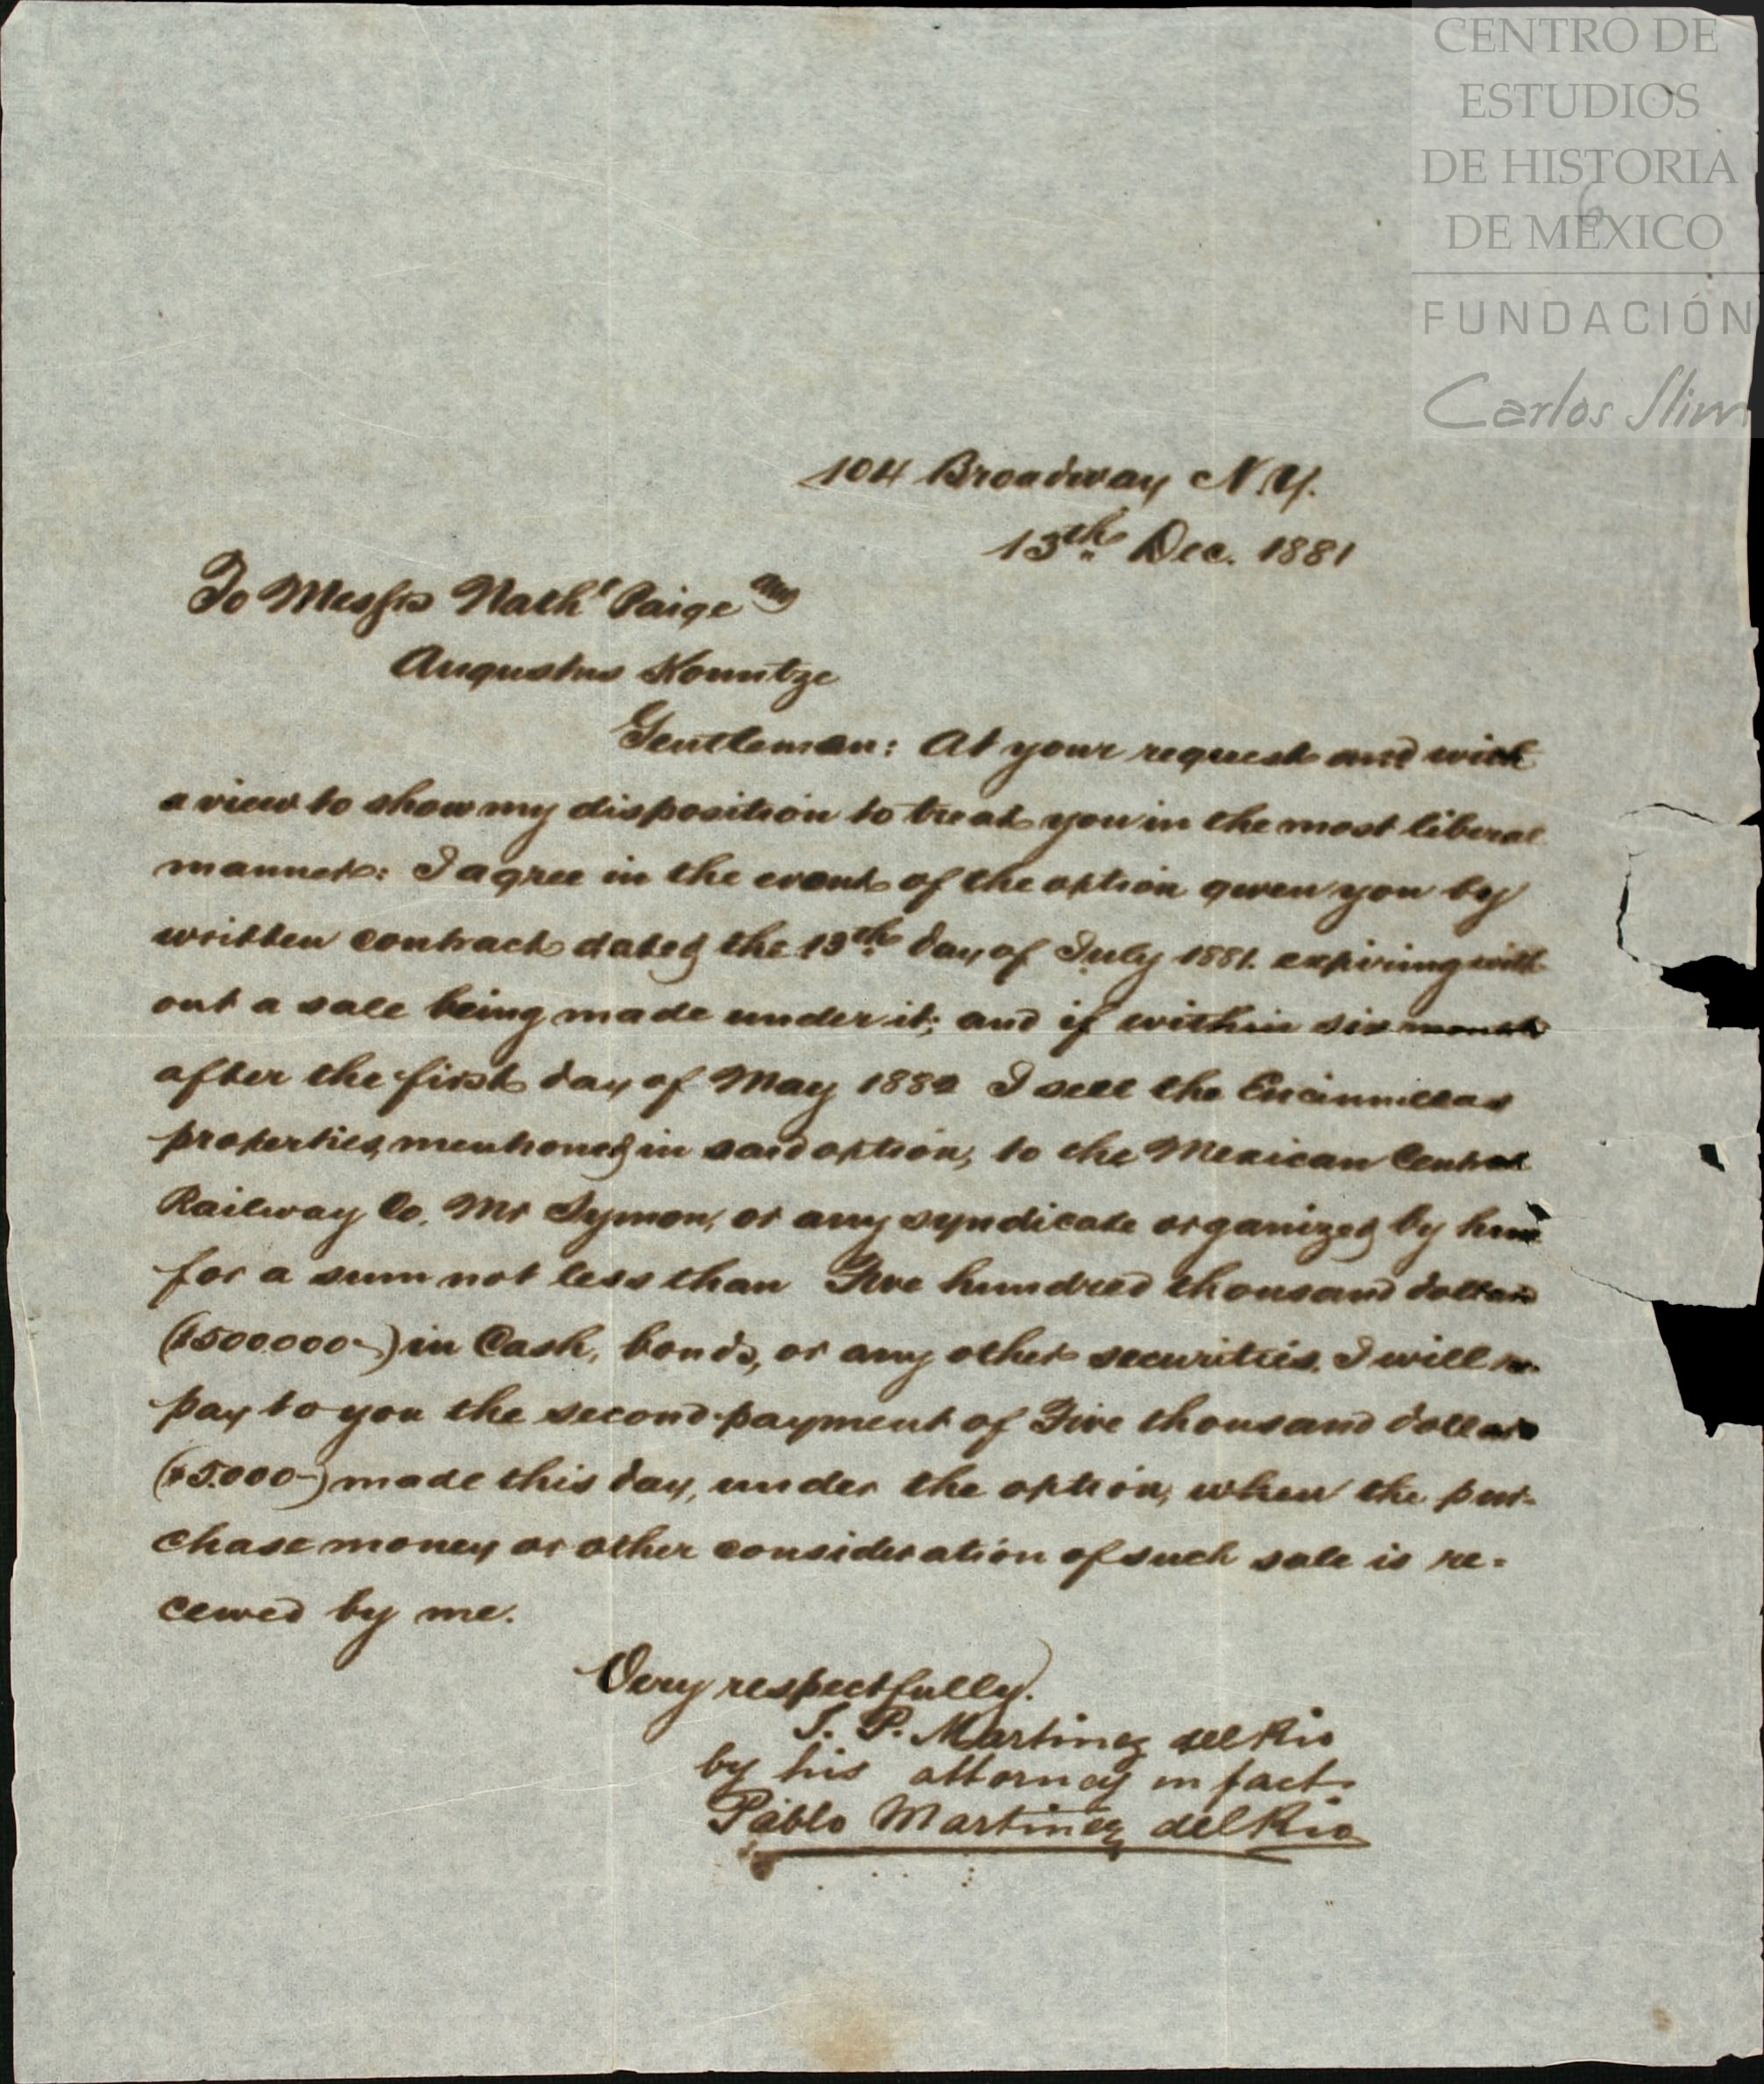 CENTRO DE
ESTUDIOS
DE HISTORIA
DE MEXICO
6
FUNDACIÓN
Carlos Slim
104 Broadway N.Y.
13th Dec. 1881
To Messrs Nathl Paige
Augustus Kountze
Gentlemen: At your request and with
a view to show my disposition to treat you in the most liberal
manner: I agree in the event of the option given you by
written contract dated the 13th day of July 1881. expiring with-
out a sale being made under it; and if within six months
after the first day of May 1882 I sell the Encinnillas
properties, mentioned in said option, to the Mexican Central
Railway Co. Mr Symon, or any syndicate organized by him
for a sum not less than Five hundred thousand dollars
($500.000-) in Cash, bonds, or any other securities, I will re-
pay to you the second payment of Five thousand dollars
($5.000-) made this day, under the option, when the pur-
chase money or other consideration of such sale is re-
ceived by me.
Very respectfully.
J. P. Martinez del Rio
by his attorney in fact.
Pablo Martinez del Rio